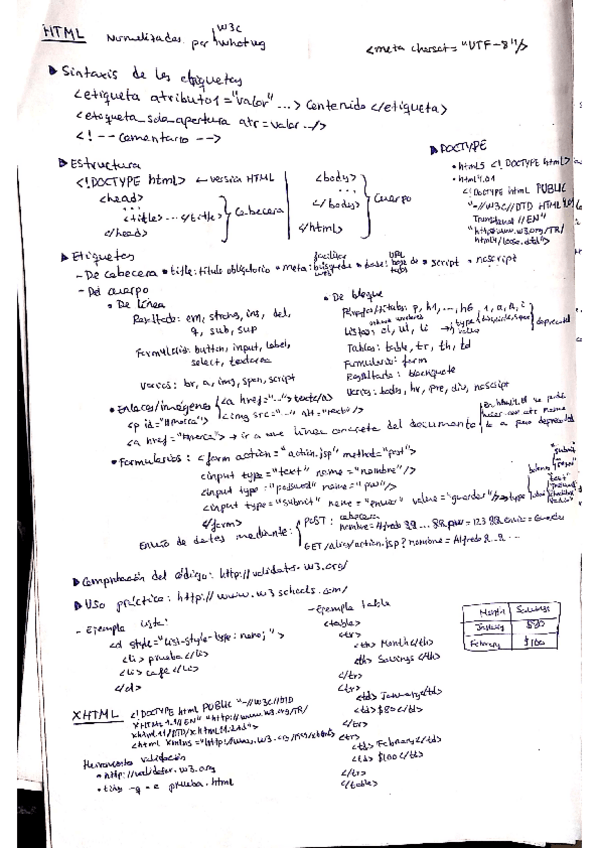 HTML Normalizadas por W3C
whatwg
<meta charset="UTF-8"/>
▶ Sintaxis de las etiquetas
<etiqueta atributo1="valor" ...> Contenido </etiqueta>
<etiqueta_solo_apertura atr=valor.../>
<!-- Comentario -->
▶ DOCTYPE
• html5 <!DOCTYPE html>
• html4.01
<!DOCTYPE html PUBLIC
"-//W3C//DTD HTML 4.01
Transitional //EN"
"http://www.w3.org/TR/
html4/loose.dtd">
▶ Estructura
<!DOCTYPE html> ← versión HTML
<head>
...
<title>...</title>
</head>
Cabecera
<body>
...
</body>
</html>
Cuerpo
▶ Etiquetas
- De cabecera • title: título obligatorio • meta: facilitar búsqueda web • base: URL base de • script • noscript
- Del cuerpo
• De línea
Resaltado: em, strong, ins, del,
q, sub, sup
Formularios: button, input, label,
select, textarea
Varios: br, a, img, span, script
• De bloque
p, h1, ..., h6
Listas: ol, ul, li → type
value
1, a, A, i
deprecated
Tablas: table, tr, th, td
Formulario: form
Resaltado: blockquote
Varios: body, hr, pre, div, noscript
• Enlaces/imágenes <a href="..."> texto</a>
<img src="..." alt="texto"/>
<p id="#marca">
<a href="#marca"> → ir a una línea concreta del documento
• Formularios: <form action="action.jsp" method="post">
<input type="text" name="nombre"/>
<input type="password" name="pw"/>
<input type="submit" name="enviar" value="guardar"/>
</form>
Envío de datos mediante: POST: cabecera
nombre=Alfredo&...&pw=123&enviar=Guardar
GET /alias/action.jsp?nombre=Alfredo&...&...
▶ Comprobación del código: http://validator.w3.org/
▶ Uso práctico: http://www.w3schools.com/
- Ejemplo lista:
<ul style="list-style-type: none;">
<li> prueba </li>
<li> café </li>
</ul>
- Ejemplo table
<table>
<tr>
<th> Month</th>
<th> Savings </th>
</tr>
<tr>
<td> January</td>
<td> $80</td>
</tr>
<tr>
<td> February</td>
<td> $100</td>
</tr>
</table>
Month Savings
January $80
February $100
XHTML <!DOCTYPE html PUBLIC "-//W3C//DTD
XHTML 1.1//EN" "http://www.w3.org/TR/
xhtml11/DTD/xhtml11.dtd">
<html xmlns="http://www.w3.org/1999/xhtml">
Herramienta validación
• http://validator.w3.org
• tidy -q -e prueba.html